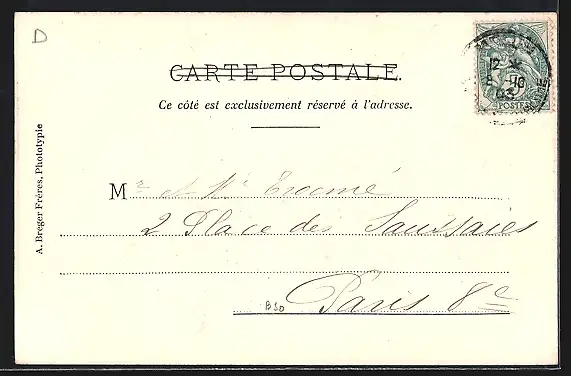 D
CARTE POSTALE.
Ce côté est exclusivement réservé à l'adresse.
A. Breger Frères, Phototypie
POSTES
12
10
03
Mr et Me Trocmé
2 Place des Saussaies
Paris 8e
B30